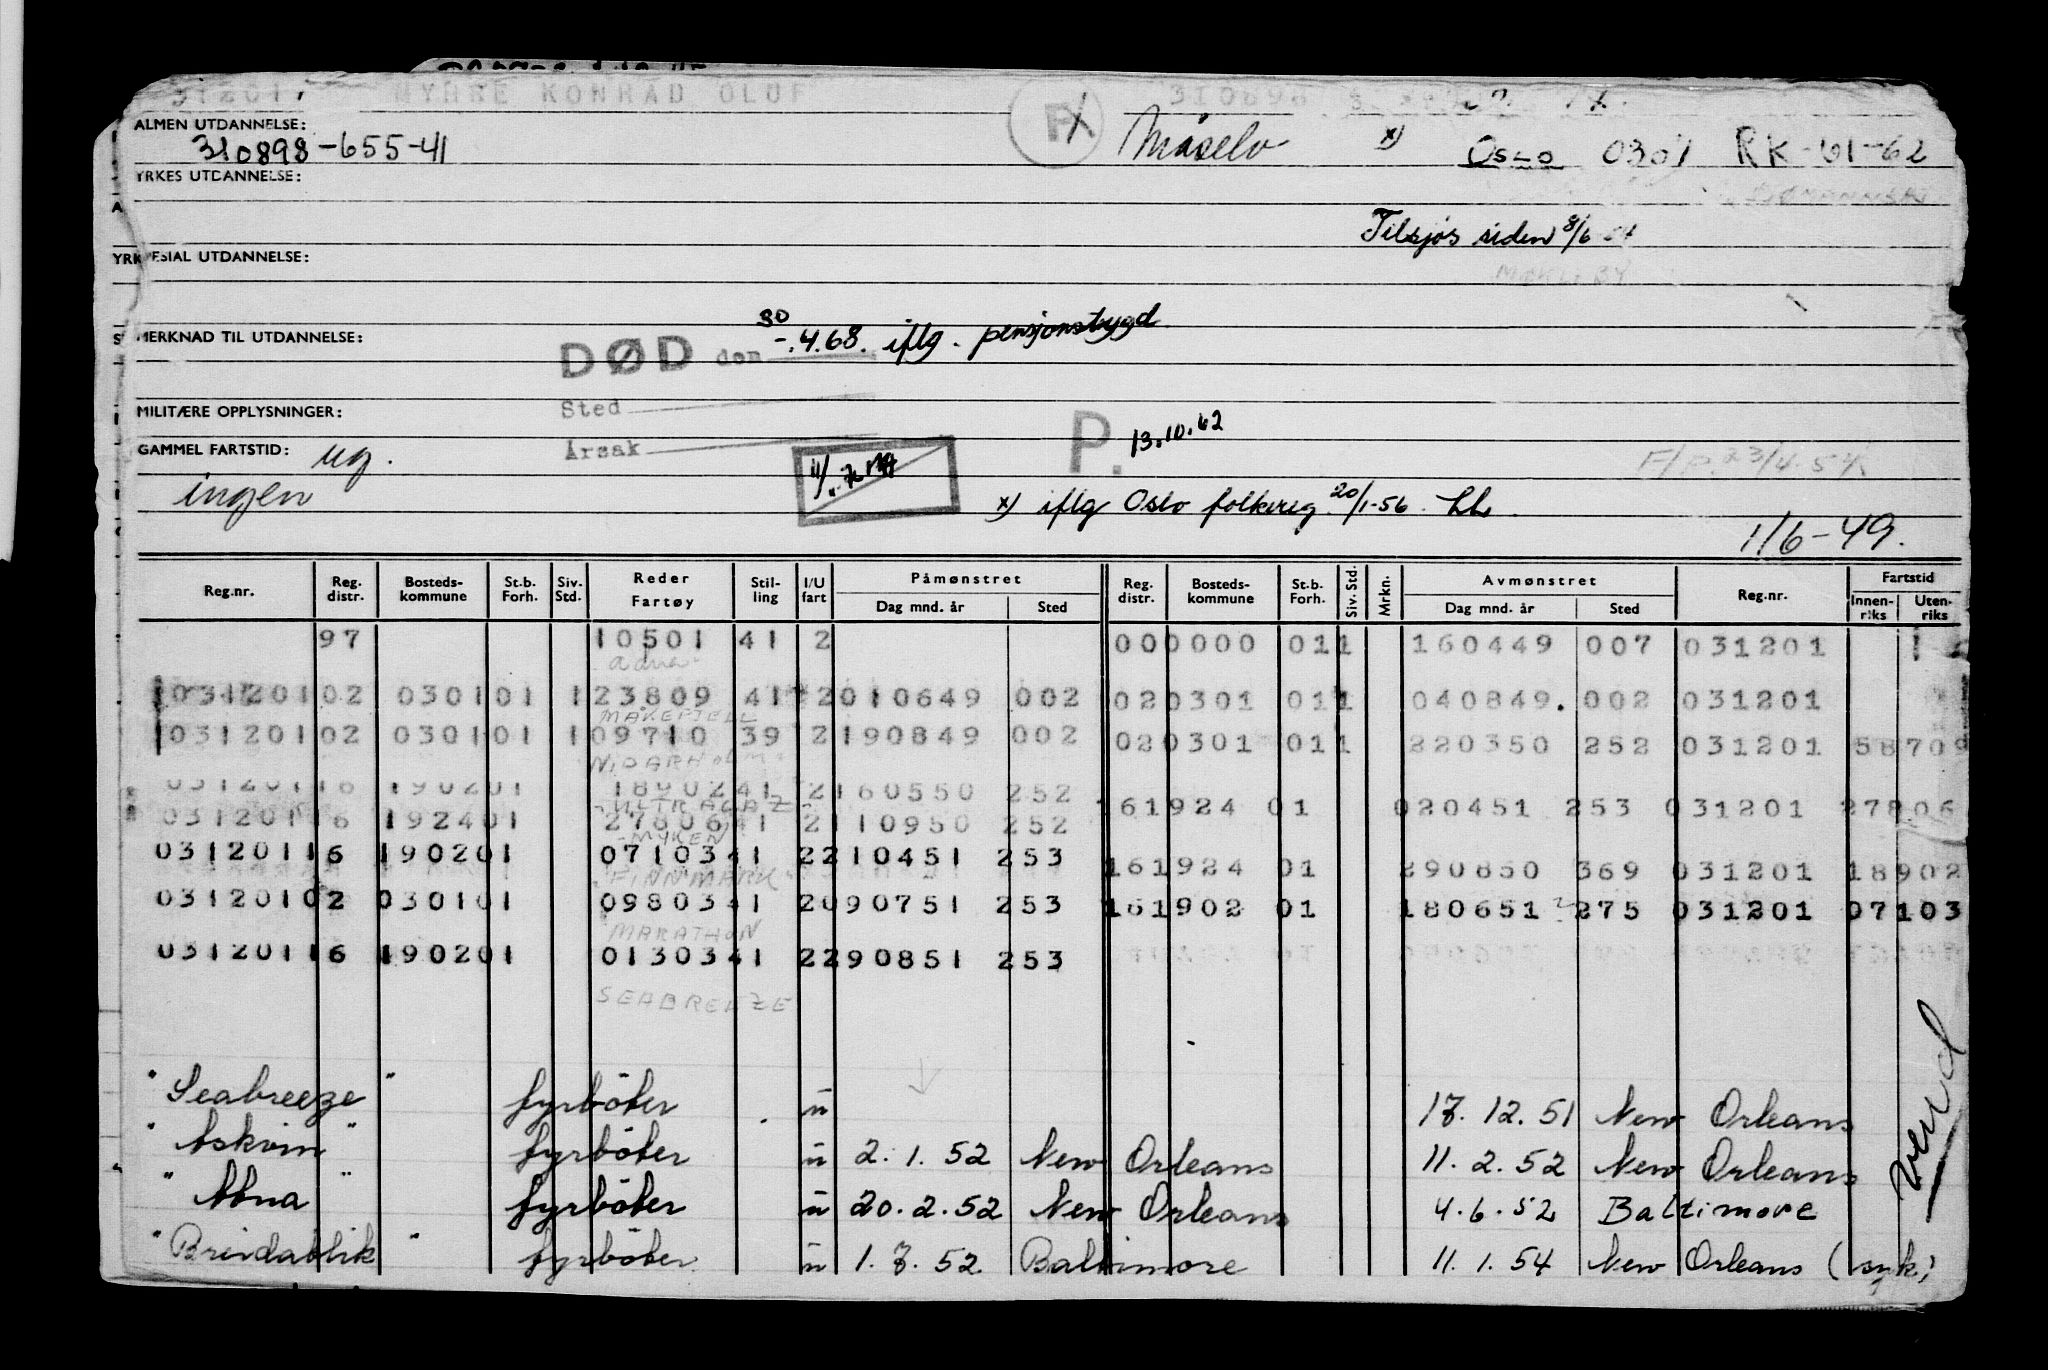 MYHRE KONRAD OLUF 310898
ALMEN UTDANNELSE:
310898-655-41
P X Måselv x) Oslo 0301 RK-01-62
YRKES UTDANNELSE:
Tilsjøs siden 8/6
SPESIAL UTDANNELSE:
MERKNAD TIL UTDANNELSE:
DØD den 30 -.4.68. iflg. pensjonstrygd
Sted
Årsak
MILITÆRE OPPLYSNINGER:
P. 13.10.62
GAMMEL FARTSTID: ug.
F/P. 23/4-54
ingen
x) iflg Oslo folkereg. 20/1-56
1/6-49.
Reg.nr. Reg. distr. Bosteds-kommune St.b. Forh. Siv. Std. Reder Fartøy Stil-ling I/U fart Påmønstret Dag mnd. år Sted Reg. distr. Bosteds-kommune St.b. Forh. Siv. Std. Mrkn. Avmønstret Dag mnd. år Sted Reg.nr. Fartstid Innen-riks Uten-riks
97 10501 41 2 000000 011 160449 007 031201
031201 02 0301 01 1 23809 41 2 010649 002 020301 011 040849. 002 031201
MÅKEFJELL
031201 02 0301 01 1 09710 39 2 190849 002 020301 011 220350 252 031201 58709
NIDARHOLM
031201 16 1902 01 18902 41 2 160550 252
ULTRAGAZ
161924 01 020451 253 031201 27806
031201 16 1924 01 27806 41 2 110950 252
MYKEN
031201 16 1902 01 07103 41 2 210451 253 161924 01 290850 369 031201 18902
FINNMARK
031201 02 0301 01 09803 41 2 090751 253 161902 01 180651 275 031201 07103
MARATHON
031201 16 1902 01 01303 41 2 290851 253
SEABREEZE
"Seabreeze" fyrböter u 17. 12. 51 New Orleans
"Askvin" fyrböter u 2. 1. 52 New Orleans 11. 2. 52 New Orleans
"Abna" fyrböter u 20. 2. 52 New Orleans 4. 6. 52 Baltimore
"Breidablik" fyrböter u 1. 7. 52 Baltimore 11. 1. 54 New Orleans (syk)
vend